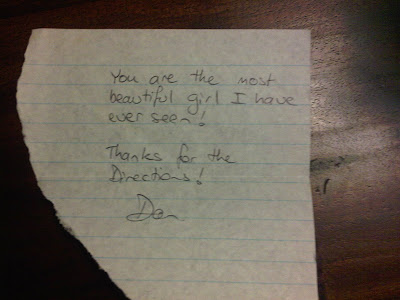 You are the most
beautiful girl I have
ever seen!
Thanks for the
Directions!
Dan